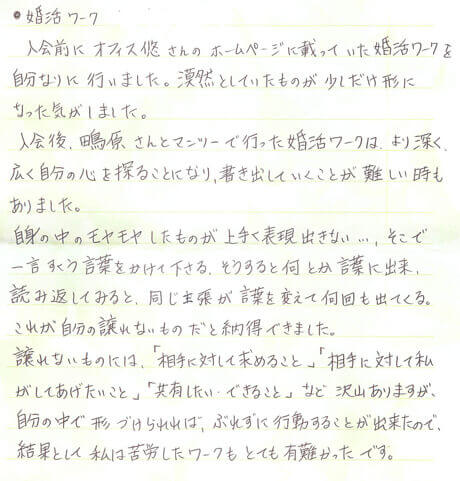 ● 婚活ワーク
入会前に オフィス悠 さんの ホームページに載っていた婚活ワークを
自分なりに 行いました。漠然としていたものが 少しだけ形に
なった気がしました。
入会後、鴫原 さんとマンツーで行った婚活ワークは、より深く、
広く自分の心を探ることになり、書き出していくことが 難しい時も
ありました。
自身の中のモヤモヤしたものが 上手く表現出きない…、そこで
一言すくう言葉をかけて下さる、そうすると何とか言葉に出来、
読み返してみると、同じ主張が 言葉を変えて何回も出てくる。
これが自分の譲れないものだと納得できました。
譲れないものには、「相手に対して求めること」「相手に対して私
がしてあげたいこと」「共有したい・できること」など 沢山ありますが、
自分の中で形づけられれば、ぶれずに行動することが出来たので、
結果として 私は苦労したワークもとても有難かったです。